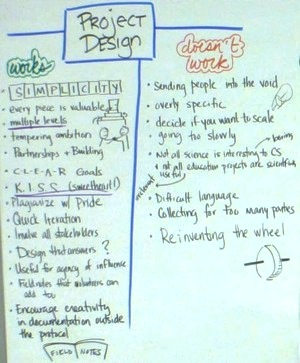 Project
Design
works
SIMPLICITY
every piece is valuable
multiple levels
tempering ambition
Partnerships + Building
C-L-E-A-R Goals
K.I.S.S (sweetheart!)
Plagiarize w/ Pride
Quick Iteration
Involve all stakeholders
Design that answers ?
Useful for agency of influence
Field notes that volunteers can
add to
Encourage creativity
in documentation outside
the protocol
FIELD NOTES
doesn't
work
Sending people into the void
overly specific
decide if you want to scale
going too slowly
boring
Not all science is interesting to CS
& not all education projects are scientifically
useful
Difficult language
Collecting for too many parties
Reinventing the wheel